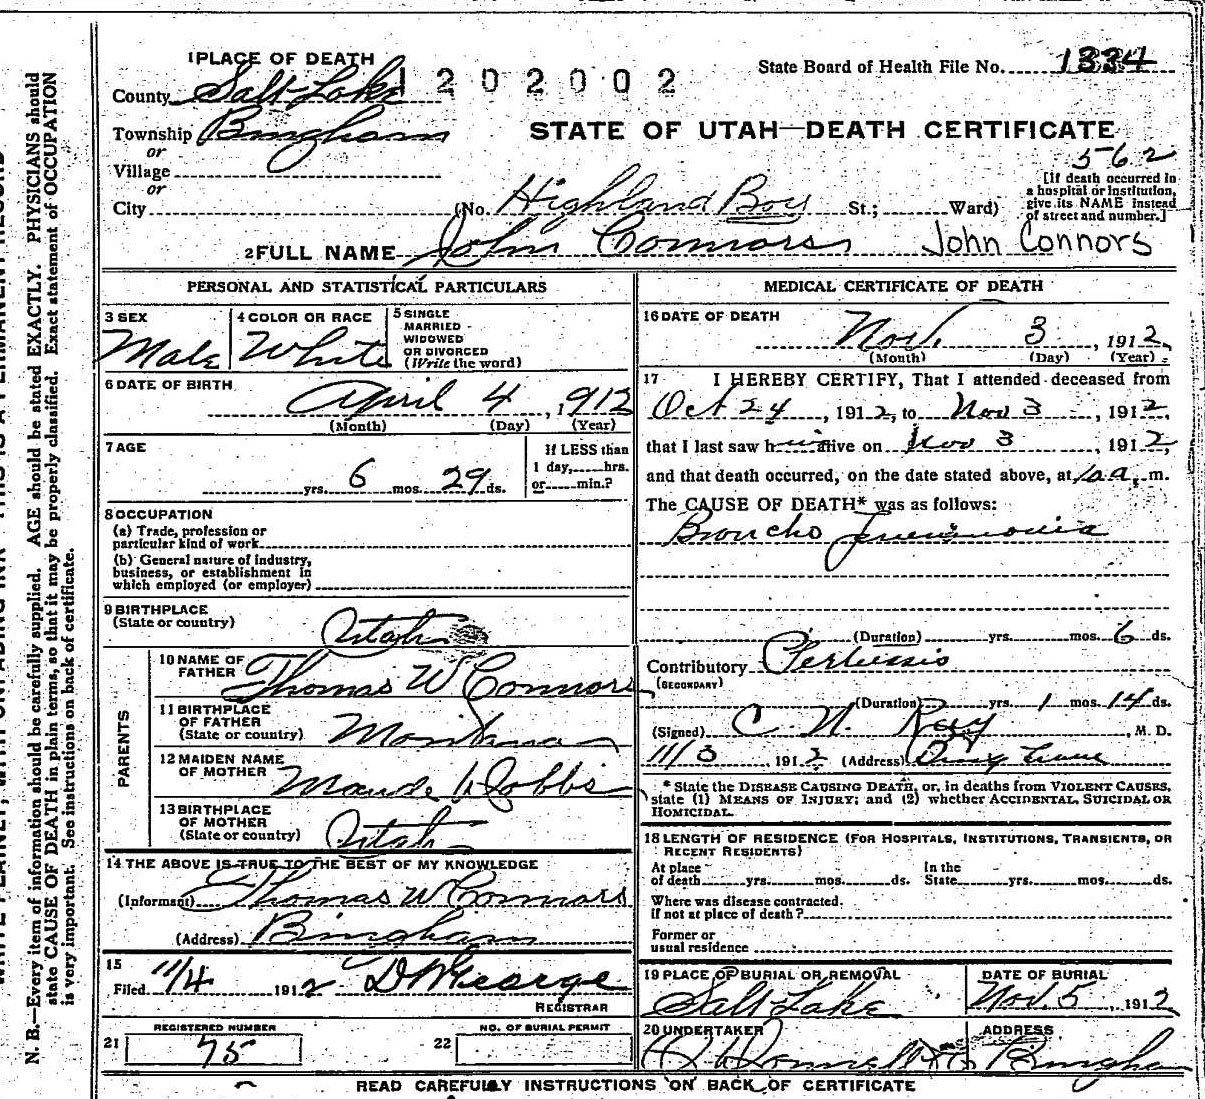 1 PLACE OF DEATH
1202002
State Board of Health File No. 1334
County Salt Lake
Township Bingham
STATE OF UTAH—DEATH CERTIFICATE
or
Village
562
[If death occurred in a hospital or institution, give its NAME instead of street and number.]
or
City (No. Highland Boy St.; Ward)
2 FULL NAME John Connors John Connors
PERSONAL AND STATISTICAL PARTICULARS
3 SEX
Male
4 COLOR OR RACE
White
5 SINGLE
MARRIED
WIDOWED
OR DIVORCED
(Write the word)
6 DATE OF BIRTH
April 4, 1912
(Month) (Day) (Year)
7 AGE
yrs. 6 mos. 29 ds.
If LESS than
1 day, hrs.
or min.?
8 OCCUPATION
(a) Trade, profession or
particular kind of work
(b) General nature of industry,
business, or establishment in
which employed (or employer)
9 BIRTHPLACE
(State or country)
Utah
PARENTS
10 NAME OF
FATHER
Thomas W Connors
11 BIRTHPLACE
OF FATHER
(State or country)
Montana
12 MAIDEN NAME
OF MOTHER
Maude Hobbs
13 BIRTHPLACE
OF MOTHER
(State or country)
Utah
14 THE ABOVE IS TRUE TO THE BEST OF MY KNOWLEDGE
(Informant) Thomas W Connors
(Address) Bingham
15
Filed 11/4 1912
REGISTRAR
REGISTERED NUMBER
21 75
NO. OF BURIAL PERMIT
22
MEDICAL CERTIFICATE OF DEATH
16 DATE OF DEATH
Nov. 3, 1912
(Month) (Day) (Year)
17 I HEREBY CERTIFY, That I attended deceased from
Oct 24, 1912, to Nov 3, 1912,
that I last saw him alive on Nov 3 1912,
and that death occurred, on the date stated above, at m.
The CAUSE OF DEATH* was as follows:
Broncho Pneumonia
(Duration) yrs. mos. 6 ds.
Contributory Pertussis
(SECONDARY)
(Duration) yrs. 1 mos. 14 ds.
(Signed) C. N. Ray, M. D.
11/3 1912 (Address)
* State the DISEASE CAUSING DEATH, or, in deaths from VIOLENT CAUSES,
state (1) MEANS OF INJURY; and (2) whether ACCIDENTAL, SUICIDAL OR
HOMICIDAL.
18 LENGTH OF RESIDENCE (FOR HOSPITALS, INSTITUTIONS, TRANSIENTS, OR
RECENT RESIDENTS)
At place In the
of death yrs. mos. ds. State yrs. mos. ds.
Where was disease contracted.
If not at place of death?
Former or
usual residence
19 PLACE OF BURIAL OR REMOVAL
Salt Lake
DATE OF BURIAL
Nov. 5, 1912
20 UNDERTAKER
ADDRESS
Bingham
READ CAREFULLY INSTRUCTIONS ON BACK OF CERTIFICATE
N. B.—Every item of information should be carefully supplied. AGE should be stated EXACTLY. PHYSICIANS should
state CAUSE OF DEATH in plain terms, so that it may be properly classified. Exact statement of OCCUPATION
is very important. See instructions on back of certificate.